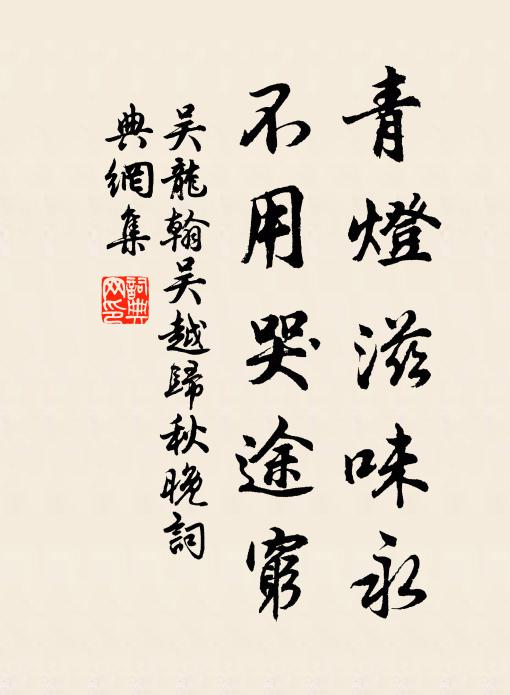 青燈滋味永
不用哭途窮
吳龍翰吳越歸秋晚詞
典網集
詞典網印